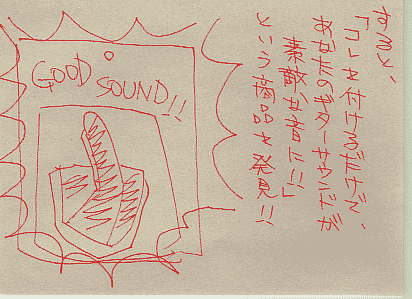 すると、
「コレを付けるだけで、
あなたのギターサウンドが
素敵な音に!!」
という商品を発見!!
GOOD
SOUND!!